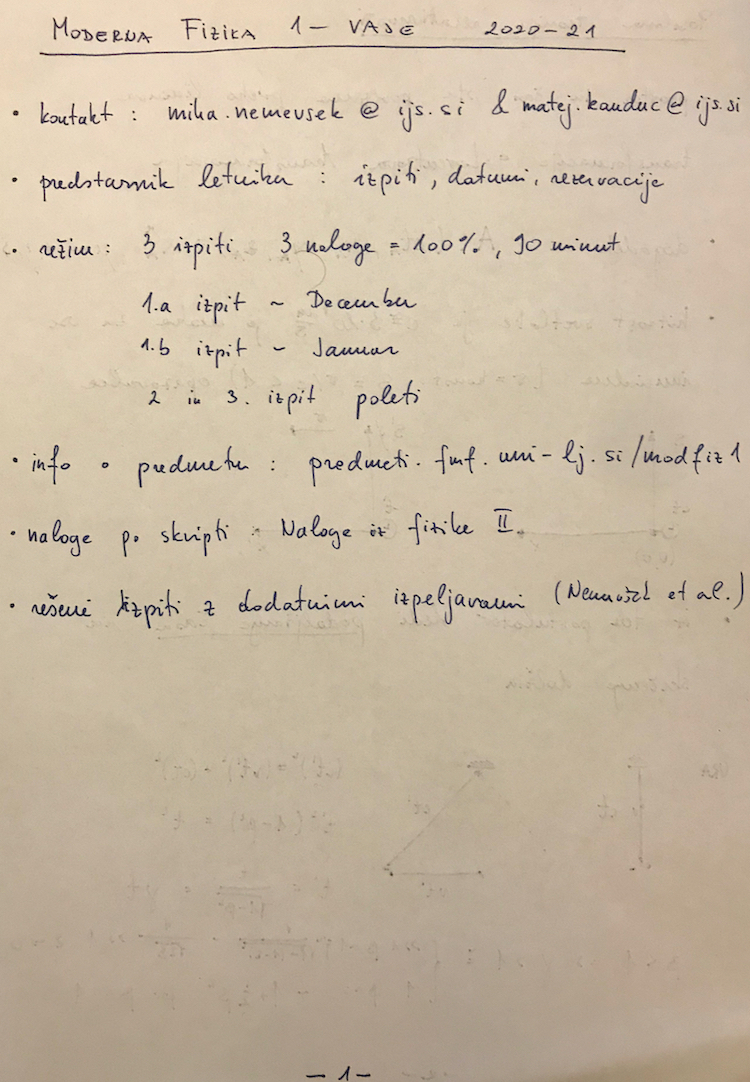 MODERNA FIZIKA 1 – VAJE 2020-21
• kontakt : miha.nemevsek @ ijs.si & matej.kanduc @ ijs.si
• predstavnik letnika : izpiti, datumi, rezervacije
• režim : 3 izpiti 3 naloge = 100%, 90 minut
1.a izpit ~ December
1.b izpit ~ Januar
2 in 3. izpit poleti
• info o predmetu : predmeti.fmf.uni-lj.si/modfiz1
• naloge po skripti : Naloge iz fizike II
• rešeni izpiti z dodatnimi izpeljavami (Nemevšek et al.)
– 1 –